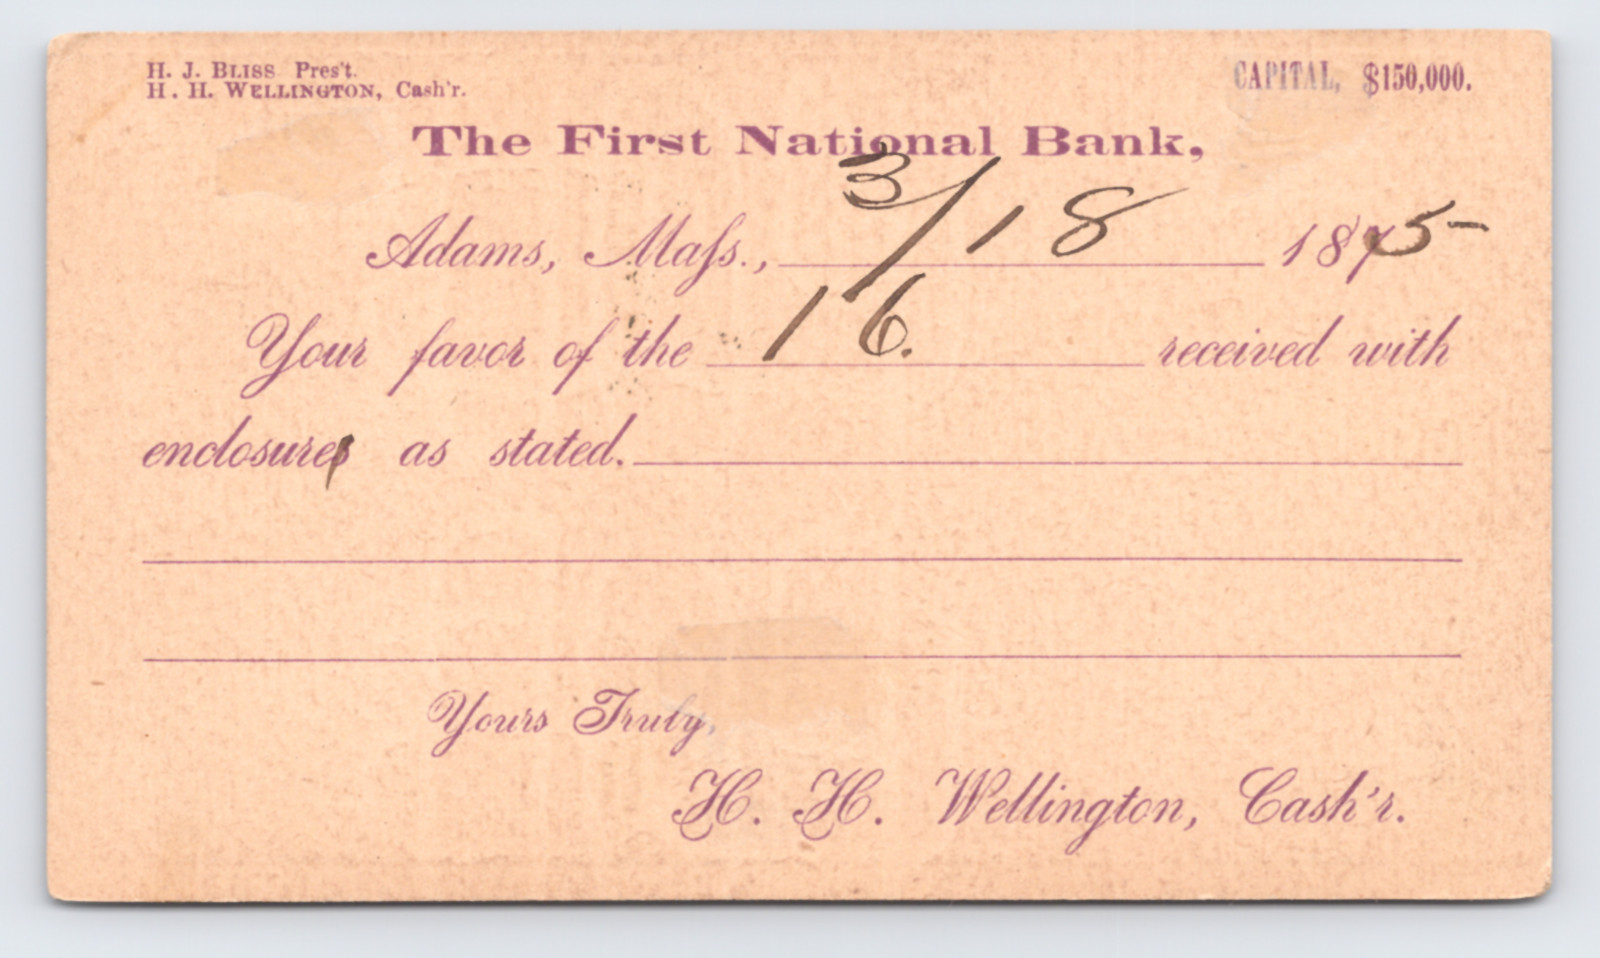 H. J. BLISS Pres't.
H. H. WELLINGTON, Cash'r.
CAPITAL, $150,000.
The First National Bank,
Adams, Mass., 3/18 1875
Your favor of the 16. received with
enclosures as stated.
Yours Truly,
H. H. Wellington, Cash'r.